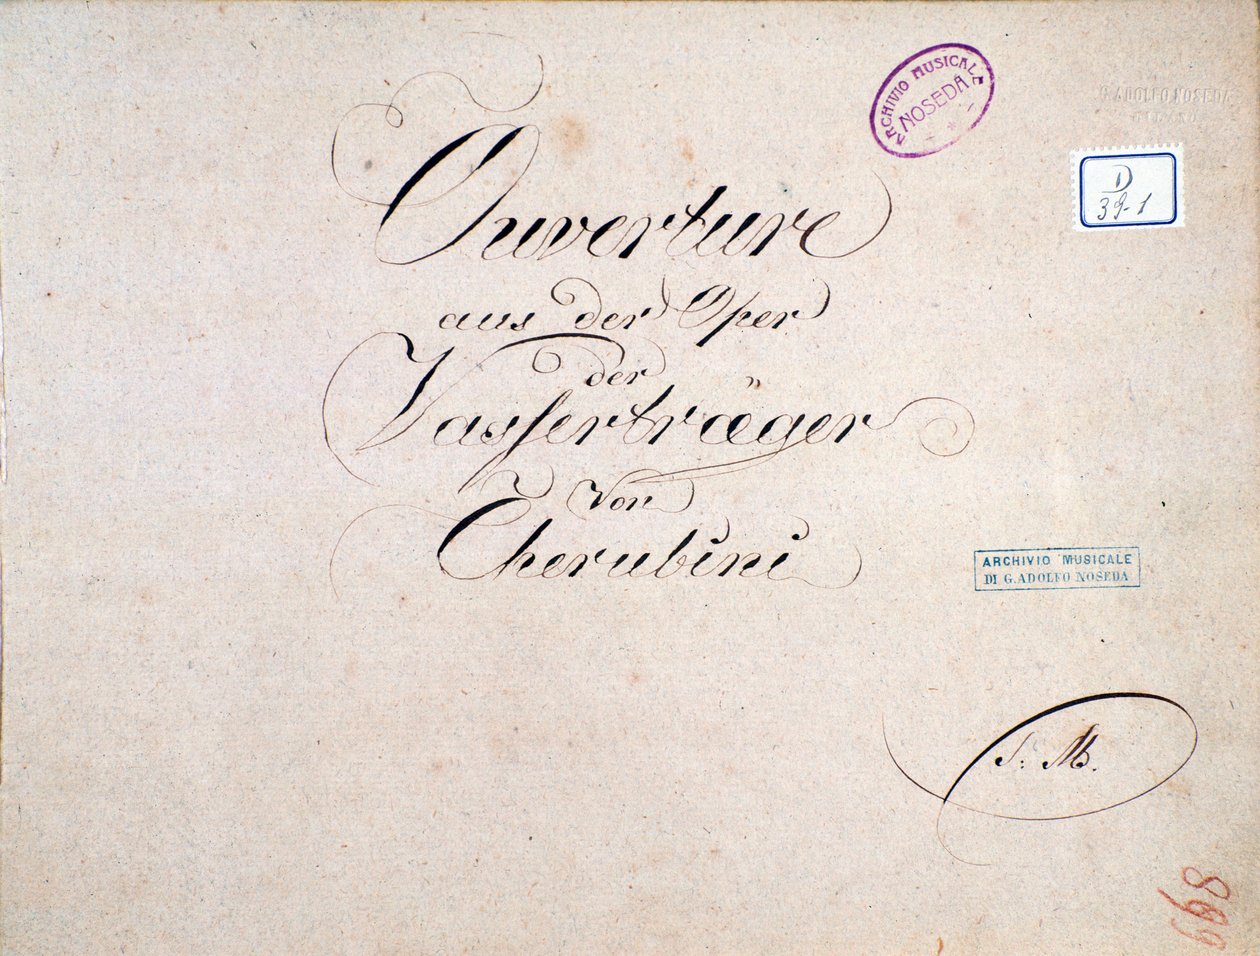 Ouverture
aus der Oper
der
Wasserträger
von
Cherubini
ARCHIVIO MUSICALE
NOSEDA
G. ADOLFO NOSEDA
MILANO
D
39-1
ARCHIVIO MUSICALE
DI G. ADOLFO NOSEDA
S: M.